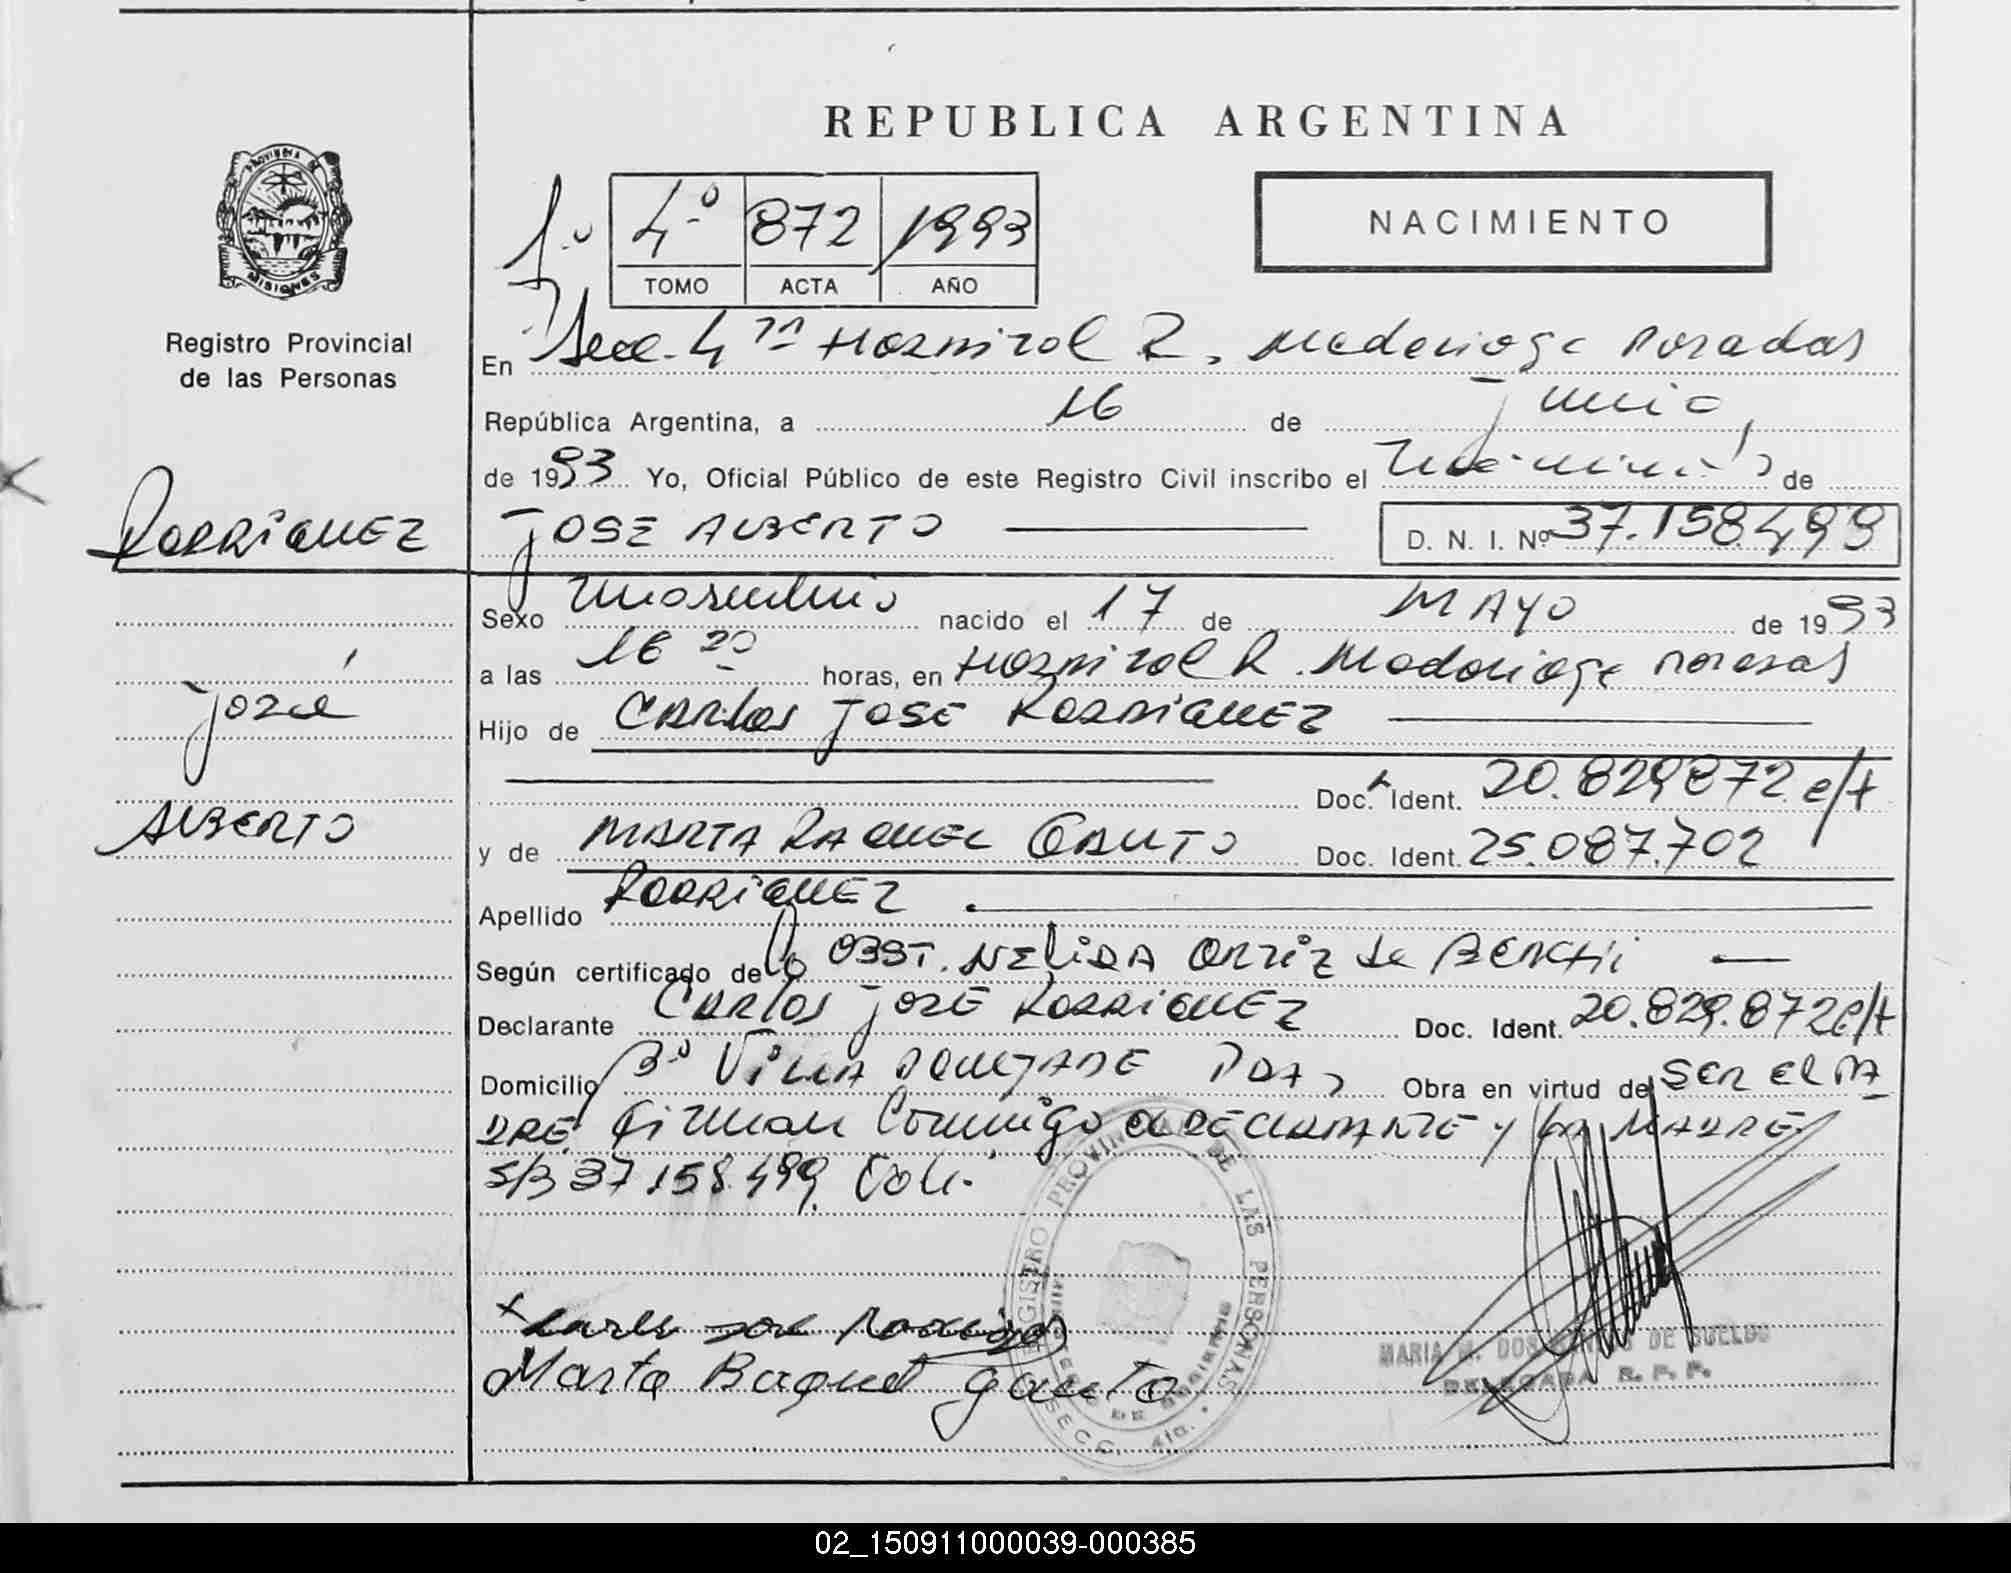 REPUBLICA ARGENTINA
PROVINCIA DE
MISIONES
Registro Provincial
de las Personas
1º 4º 872 1993
TOMO ACTA AÑO
NACIMIENTO
En Secc. 4ta Hospital R. Madariaga Posadas
República Argentina, a 16 de Junio
de 1993 Yo, Oficial Público de este Registro Civil inscribo el de
RODRIGUEZ
JOSE ALBERTO D. N. I. Nº 37.158.499
Sexo Masculino nacido el 17 de MAYO de 1993
a las 16 20 horas, en Hospital R. Madariaga Posadas
José
Hijo de Carlos JOSE RODRIGUEZ
Doc. Ident. 20.829872 c/t
ALBERTO
y de MARTA RAQUEL GAUTO Doc. Ident. 25.087.702
Apellido RODRIGUEZ
Según certificado de la OBST. NELIDA ORTIZ de
Declarante Carlos JOSE RODRIGUEZ Doc. Ident. 20.829.872 c/t
Domicilio Bº Villa PDAS Obra en virtud de SER EL PA
DRE. Firman Conmigo el DECLARANTE y LA MADRE
S/B 37.158.499.
REGISTRO PROVINCIAL DE LAS PERSONAS
SECC. 4ta.
Carlos José Rodriguez
Marta Raquel Gauto
MARIA M. DOS DE SUELDO
DELEGADA R. P. P.
02_150911000039-000385